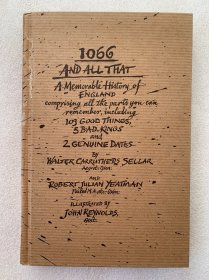 1066
AND ALL THAT
A Memorable History of
ENGLAND
comprising all the parts you can
remember, including
103 GOOD THINGS,
5 BAD KINGS
and
2 GENUINE DATES
by
WALTER CARRUTHERS SELLAR
Aegrot: Oxon:
AND
ROBERT JULIAN YEATMAN
Failed M.A. etc: Oxon:
ILLUSTRATED BY
JOHN REYNOLDS,